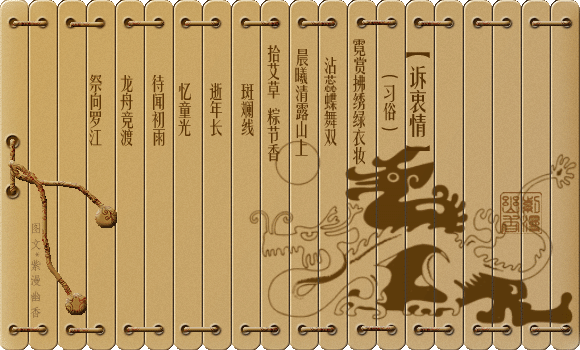 【诉衷情】
（习俗）
霓赏拂绣绿衣妆
沾蕊蝶舞双
晨曦清露山上
拾艾草 粽节香
斑斓线
逝年长
忆童光
待闻初雨
龙舟竞渡
祭向罗江
图文·紫漫幽香